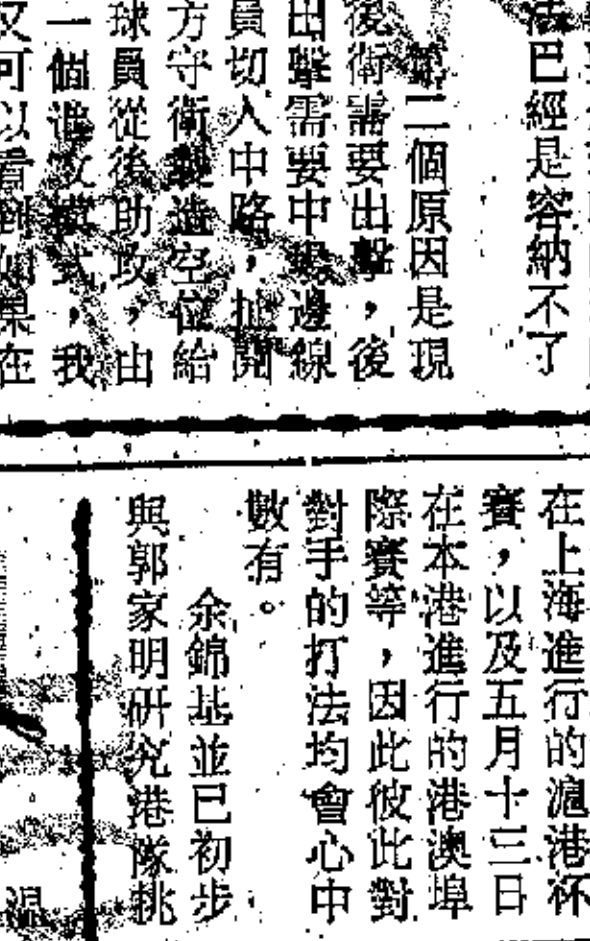 法巴經是容納不了
第二個原因是現
後衛需要出擊，後
出擊需要中緊邊線
員切入中路，扯開
方守衛製造空位給
球員從後助攻，由
一個進攻模式，我
又可以看到如果在
在上海進行的滬港杯
賽，以及五月十三日
在本港進行的港澳埠
際賽等，因此彼此對
對手的打法均會心中
數有。
余錦基並已初步
與郭家明研究港隊挑